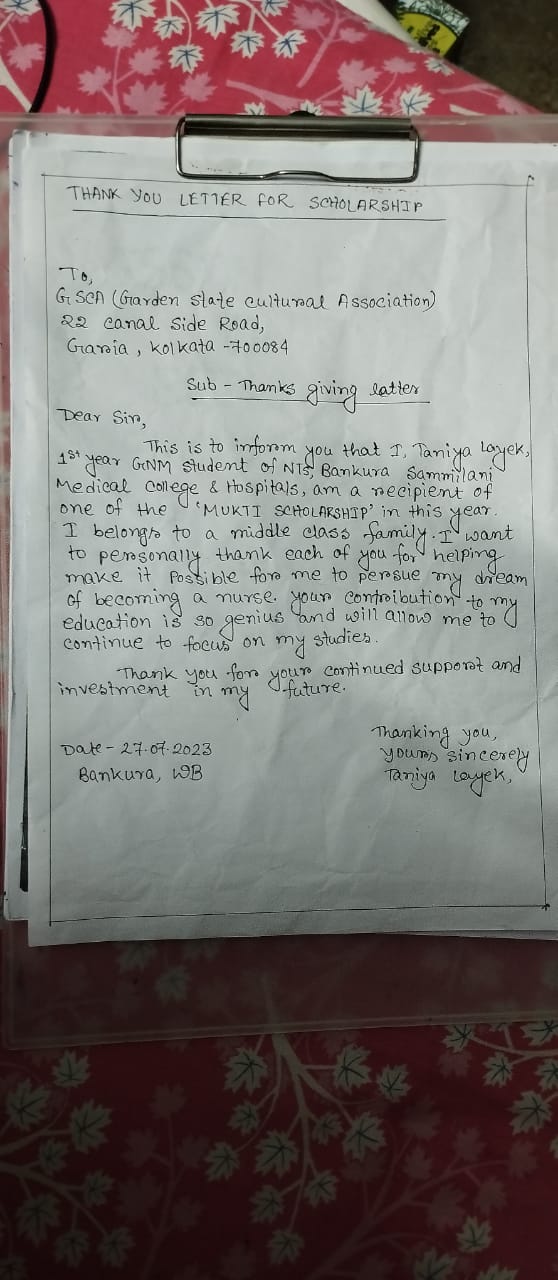 THANK YOU LETTER FOR SCHOLARSHIP
To,
GSCA (Garden state cultural Association)
22 canal side Road,
Garia, kolkata -700084
Sub - Thanks giving latter
Dear Sir,
This is to inform you that I, Taniya Layek,
1st year GNM student of NTS, Bankura Sammilani
Medical college & Hospitals, am a recipient of
one of the 'MUKTI SCHOLARSHIP' in this year.
I belongs to a middle class family. I want
to personally thank each of you for helping
make it possible for me to persue my dream
of becoming a nurse. your contribution to my
education is so genius and will allow me to
continue to focus on my studies.
Thank you for your continued support and
investment in my future.
Thanking you,
Date - 27.07.2023
yours sincerely
Bankura, WB
Taniya Layek,